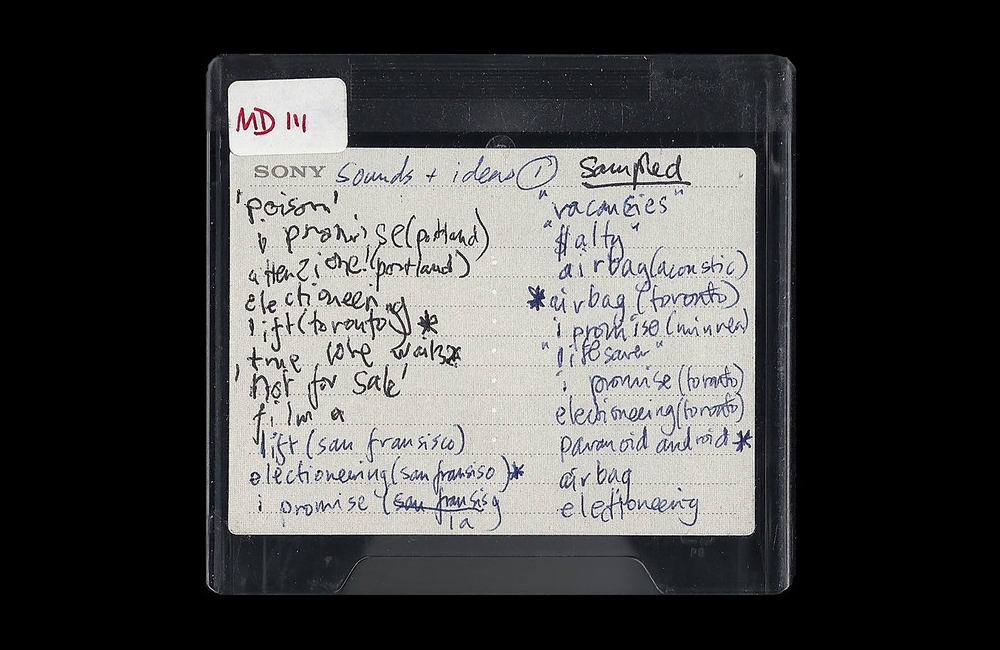 MD 111
SONY sounds + ideas ① sampled
'poison'
i promise (portland)
attenzione! (portland)
electioneering
lift (toronto) *
true love waits *
'not for sale'
film a
lift (san fransisco)
electioneering (san fransiso) *
i promise (san fransis
la
"vacancies"
"$alty"
airbag (acoustic)
* airbag (toronto)
i promise
"lifesaver"
i promise (toronto)
electioneering (toronto)
paranoid android *
airbag
electioneering